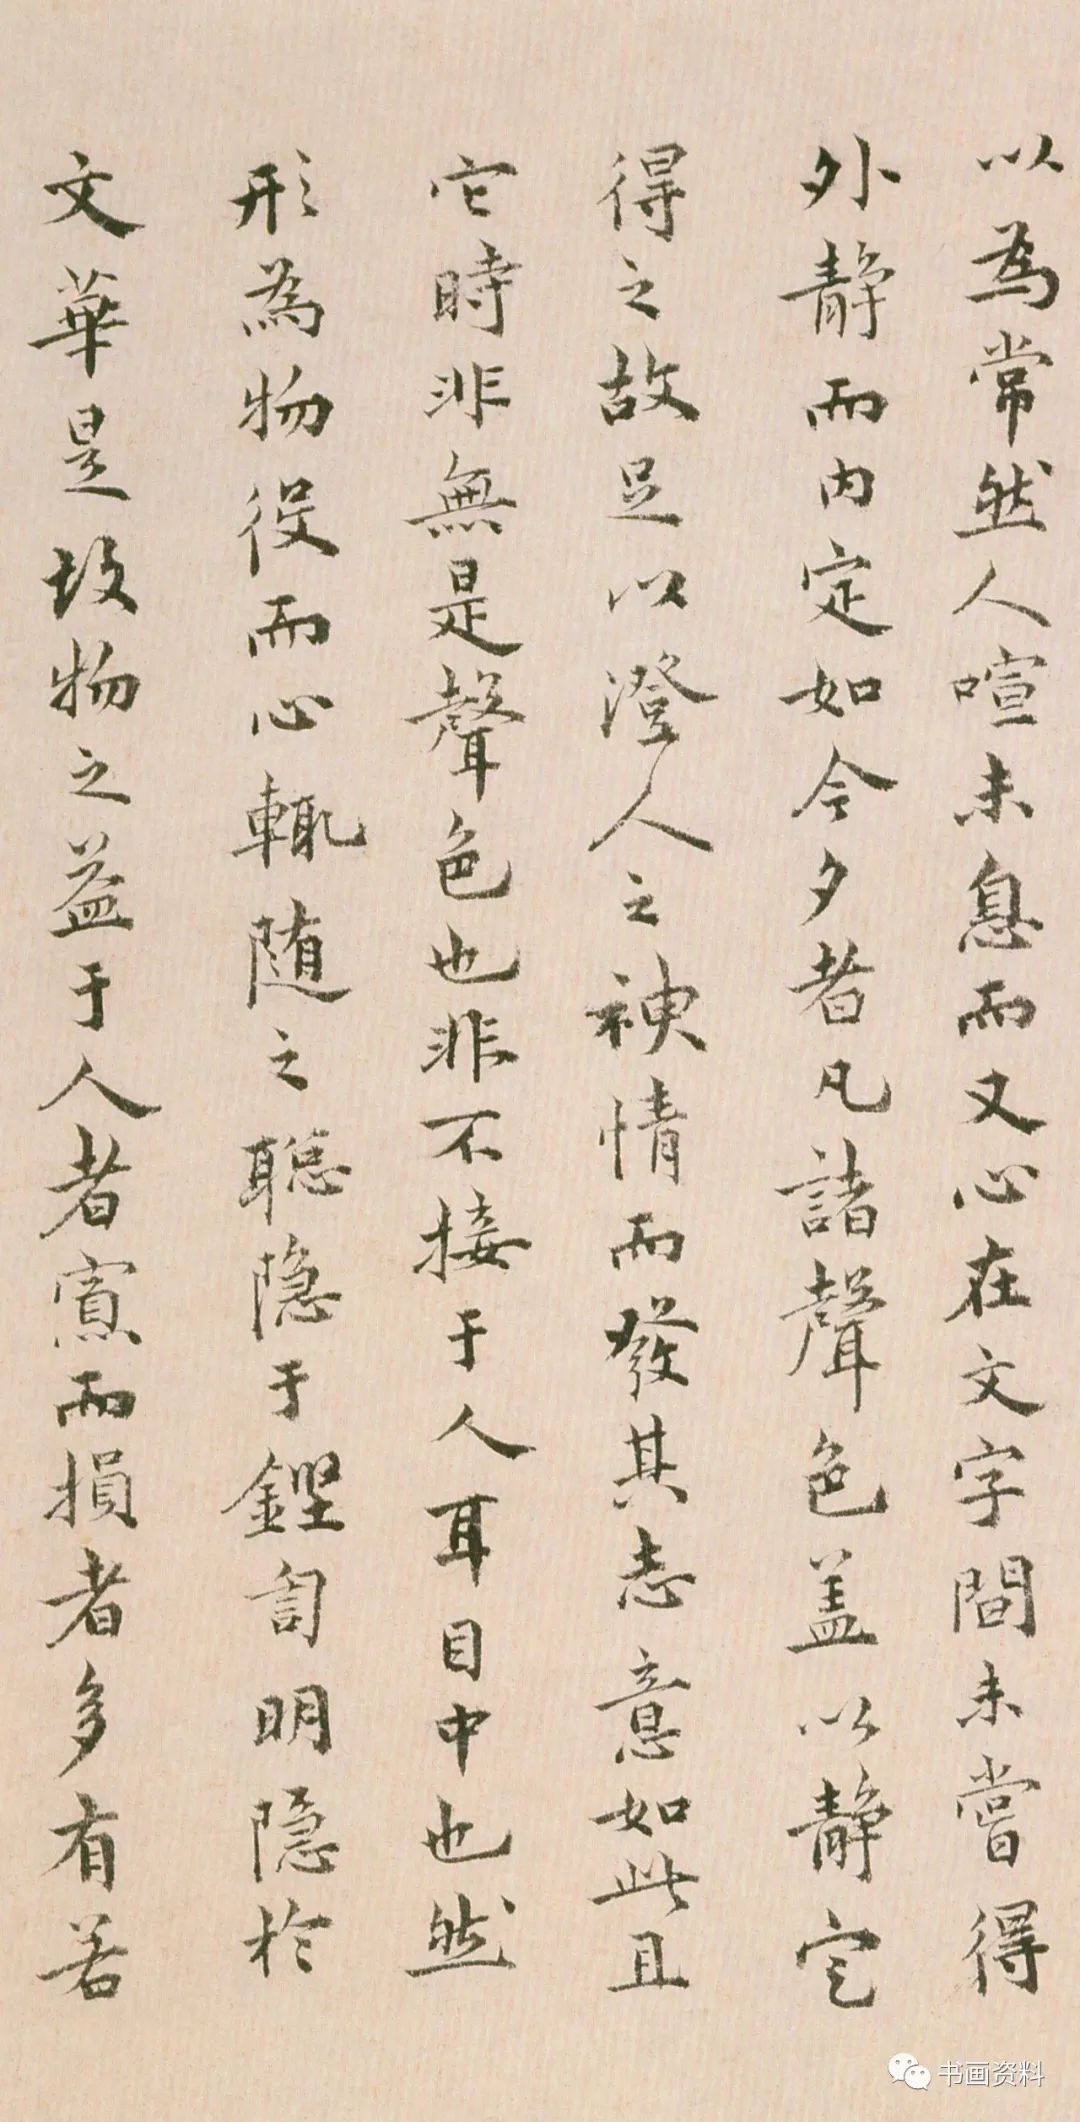 以為常然人喧未息而又心在文字間未嘗得
外静而内定如今夕者凡諸聲色盖以静定
得之故足以澄人之神情而發其志意如此且
它時非無是聲色也非不接于人耳目中也然
形為物役而心輒随之聡隐于鏗訇明隐於
文華是故物之益于人者寡而損者多有若
书画资料